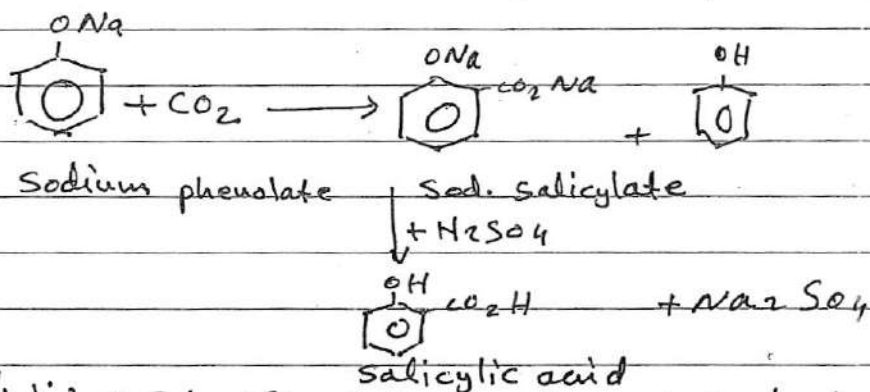 ONa
ONa OH
+ CO2 → CO2Na +
Sodium phenolate Sod. salicylate
+ H2SO4
OH
CO2H + Na2SO4
Salicylic acid